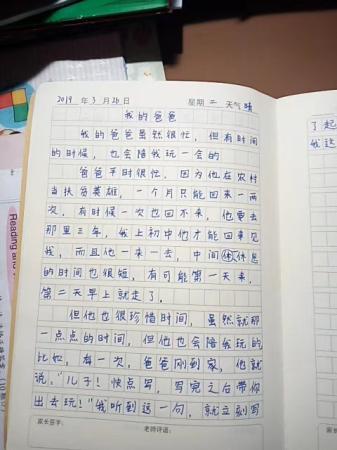 2019 年 3 月 26 日 星期 二 天气 晴
我的爸爸
我的爸爸虽然很忙，但有时间
的时候，也会陪我玩一会的
爸爸平时很忙，因为他在农村
当扶贫英雄，一个月只能回来一两
次，有时候一次也回不来，他要去
那里三年，我上初中他才能回来见
我，而且他一来一去，中间休息
的时间也很短，有可能第一天来，
第二天早上就走了。
但他也很珍惜时间，虽然就那
一点点的时间，但他也会陪我玩的
比如，有一次，爸爸刚到家，他就
说："儿子！快点写，写完之后带你
出去玩！"我听到这一句，就立刻写
家长签字： 老师评语：
了起
我这
Reading and